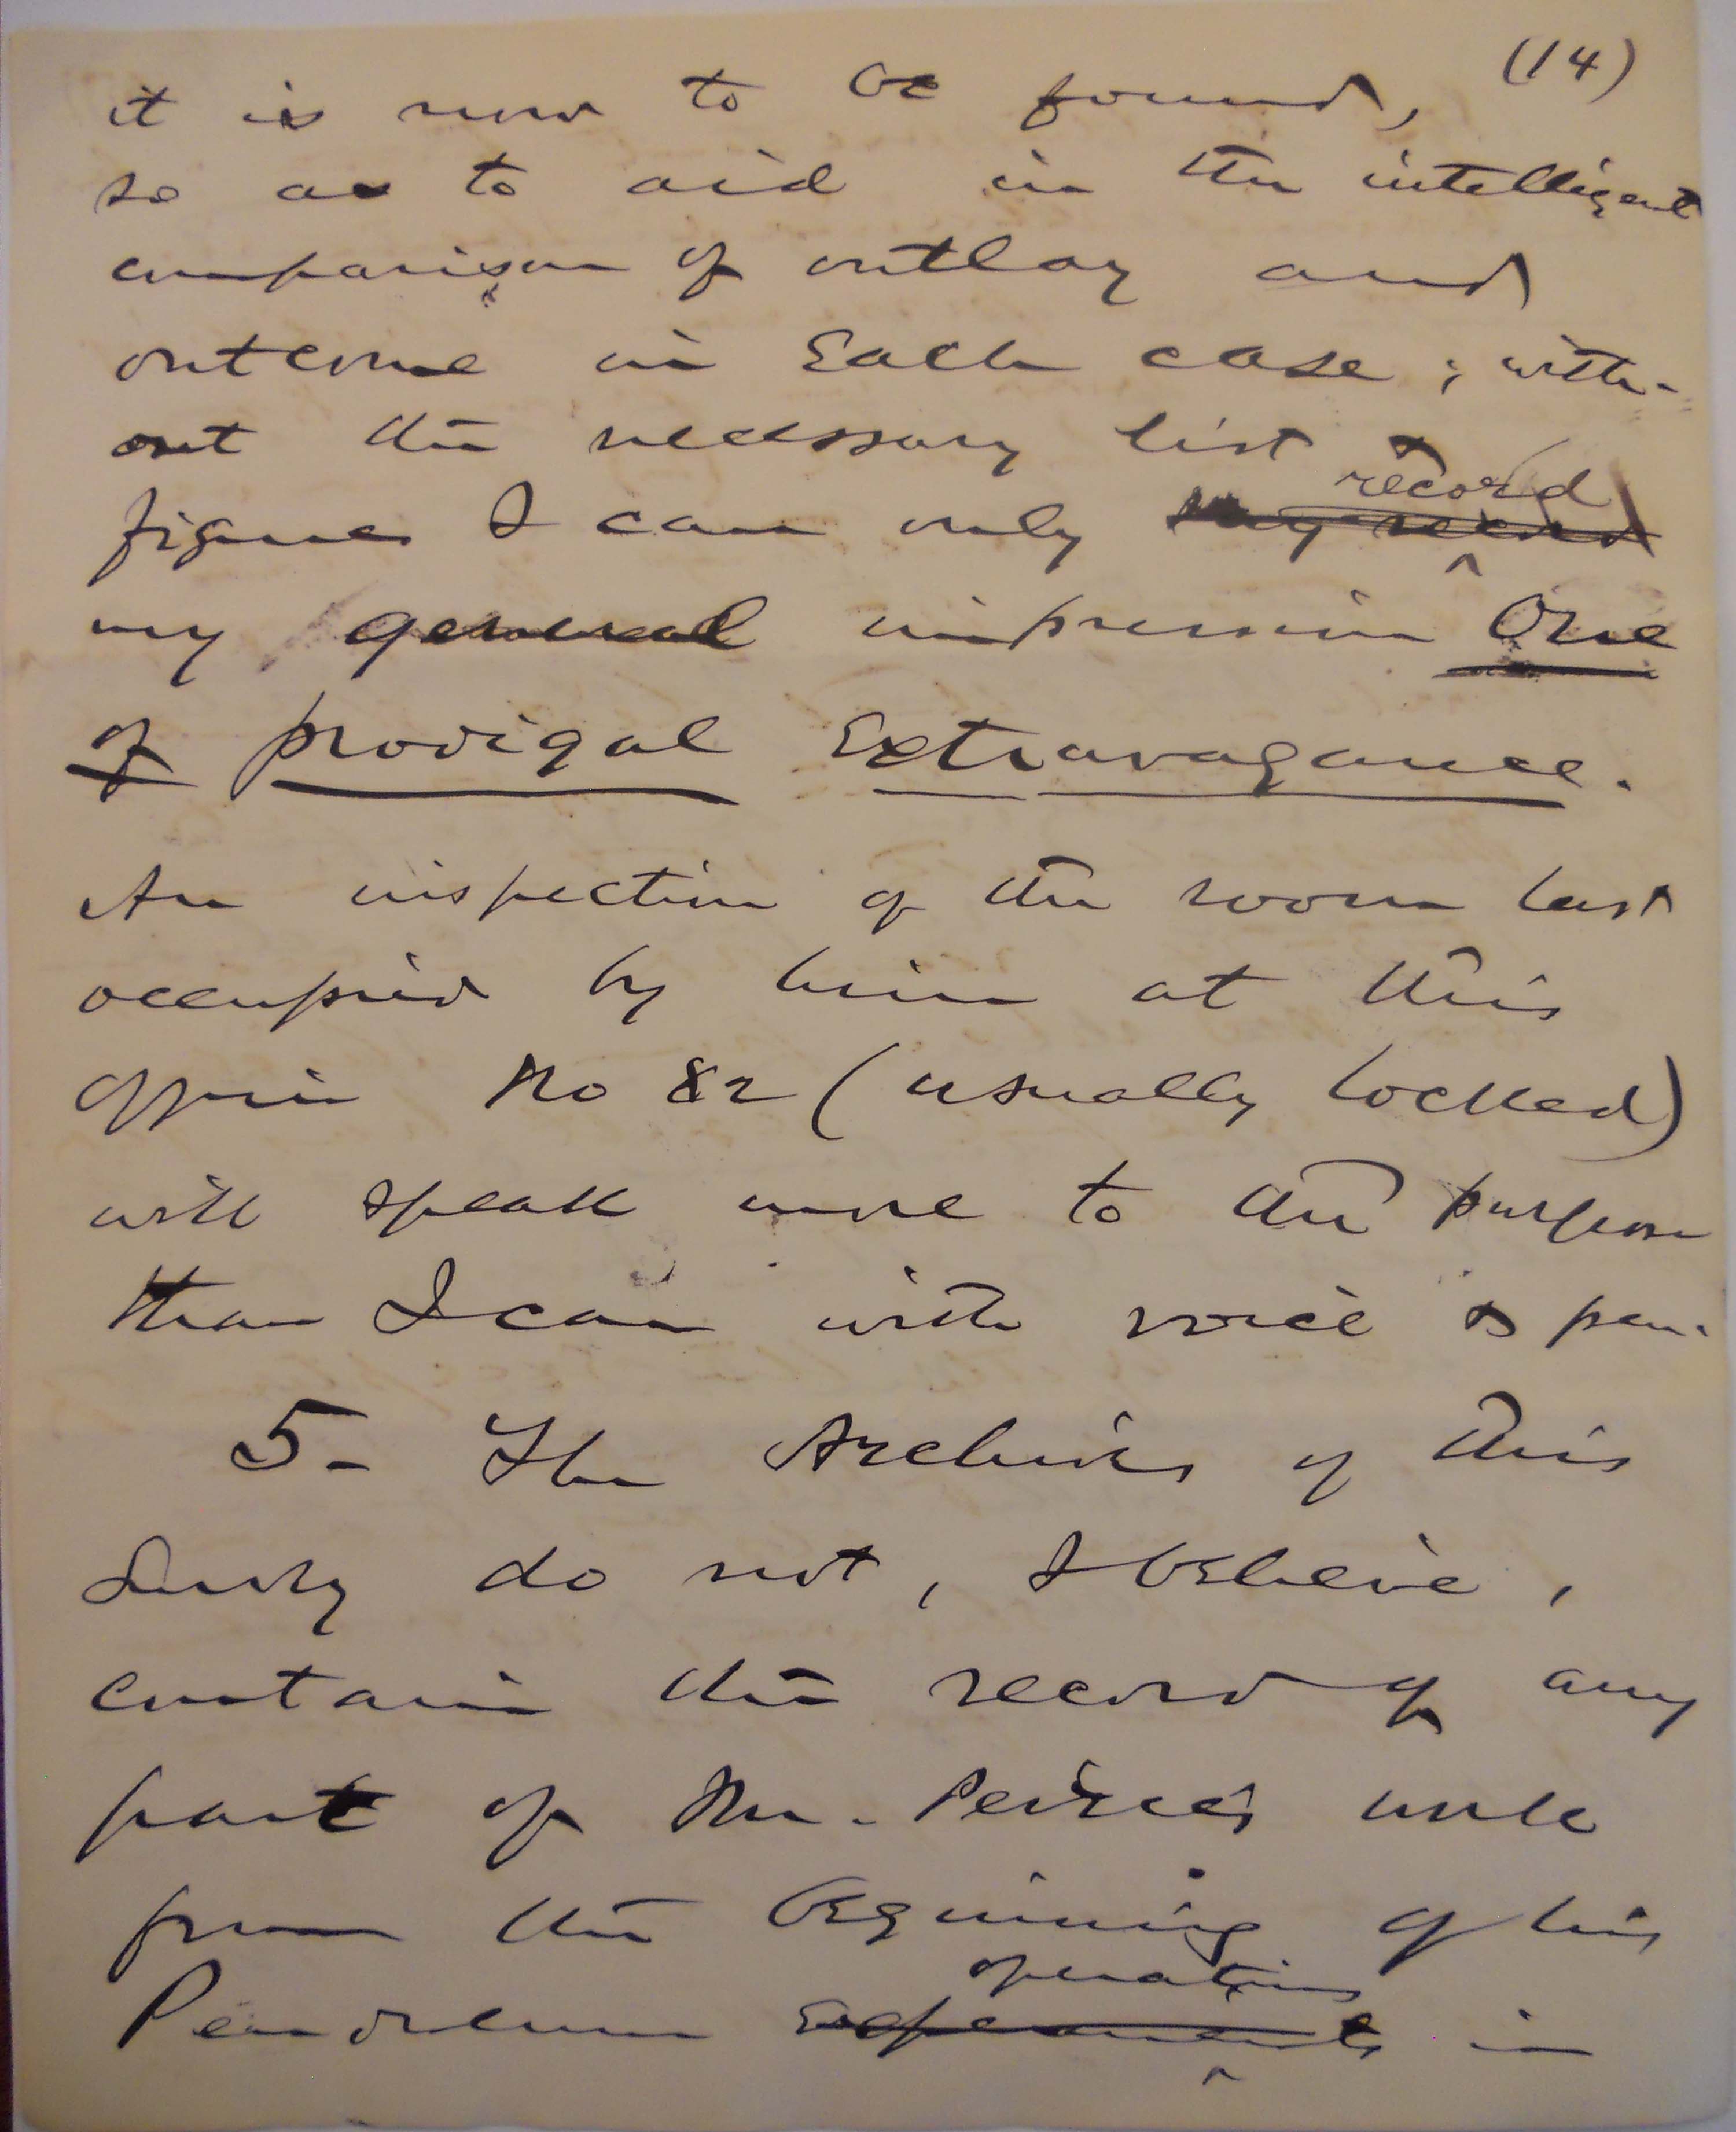 (14)
it is now to be found,
so as to aid in the intelligent
comparison of outlay and
outcome in Each case; with-
out the necessary list &
record
figures I can only say record
my general impression One
of prodigal Extravagance.
An inspection of the room last
occupied by him at this
office No 82 (usually locked)
will speak more to the purpose
than I can with voice & pen.
5- The Archives of this
Survey do not, I believe,
contain the record of any
part of Mr. Peirce's work
from the beginning of his
operations
Pendulum Experiments in